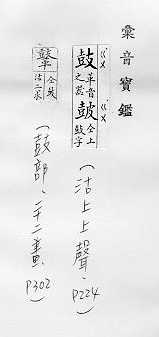 彙音寶鑑
ㄍㄨ ㄍㄨ
鼓 革音之器
皷 仝上鼓字
(沽上上聲、P224)
仝皷
沽二求
(鼓部、二十二畫、P302)